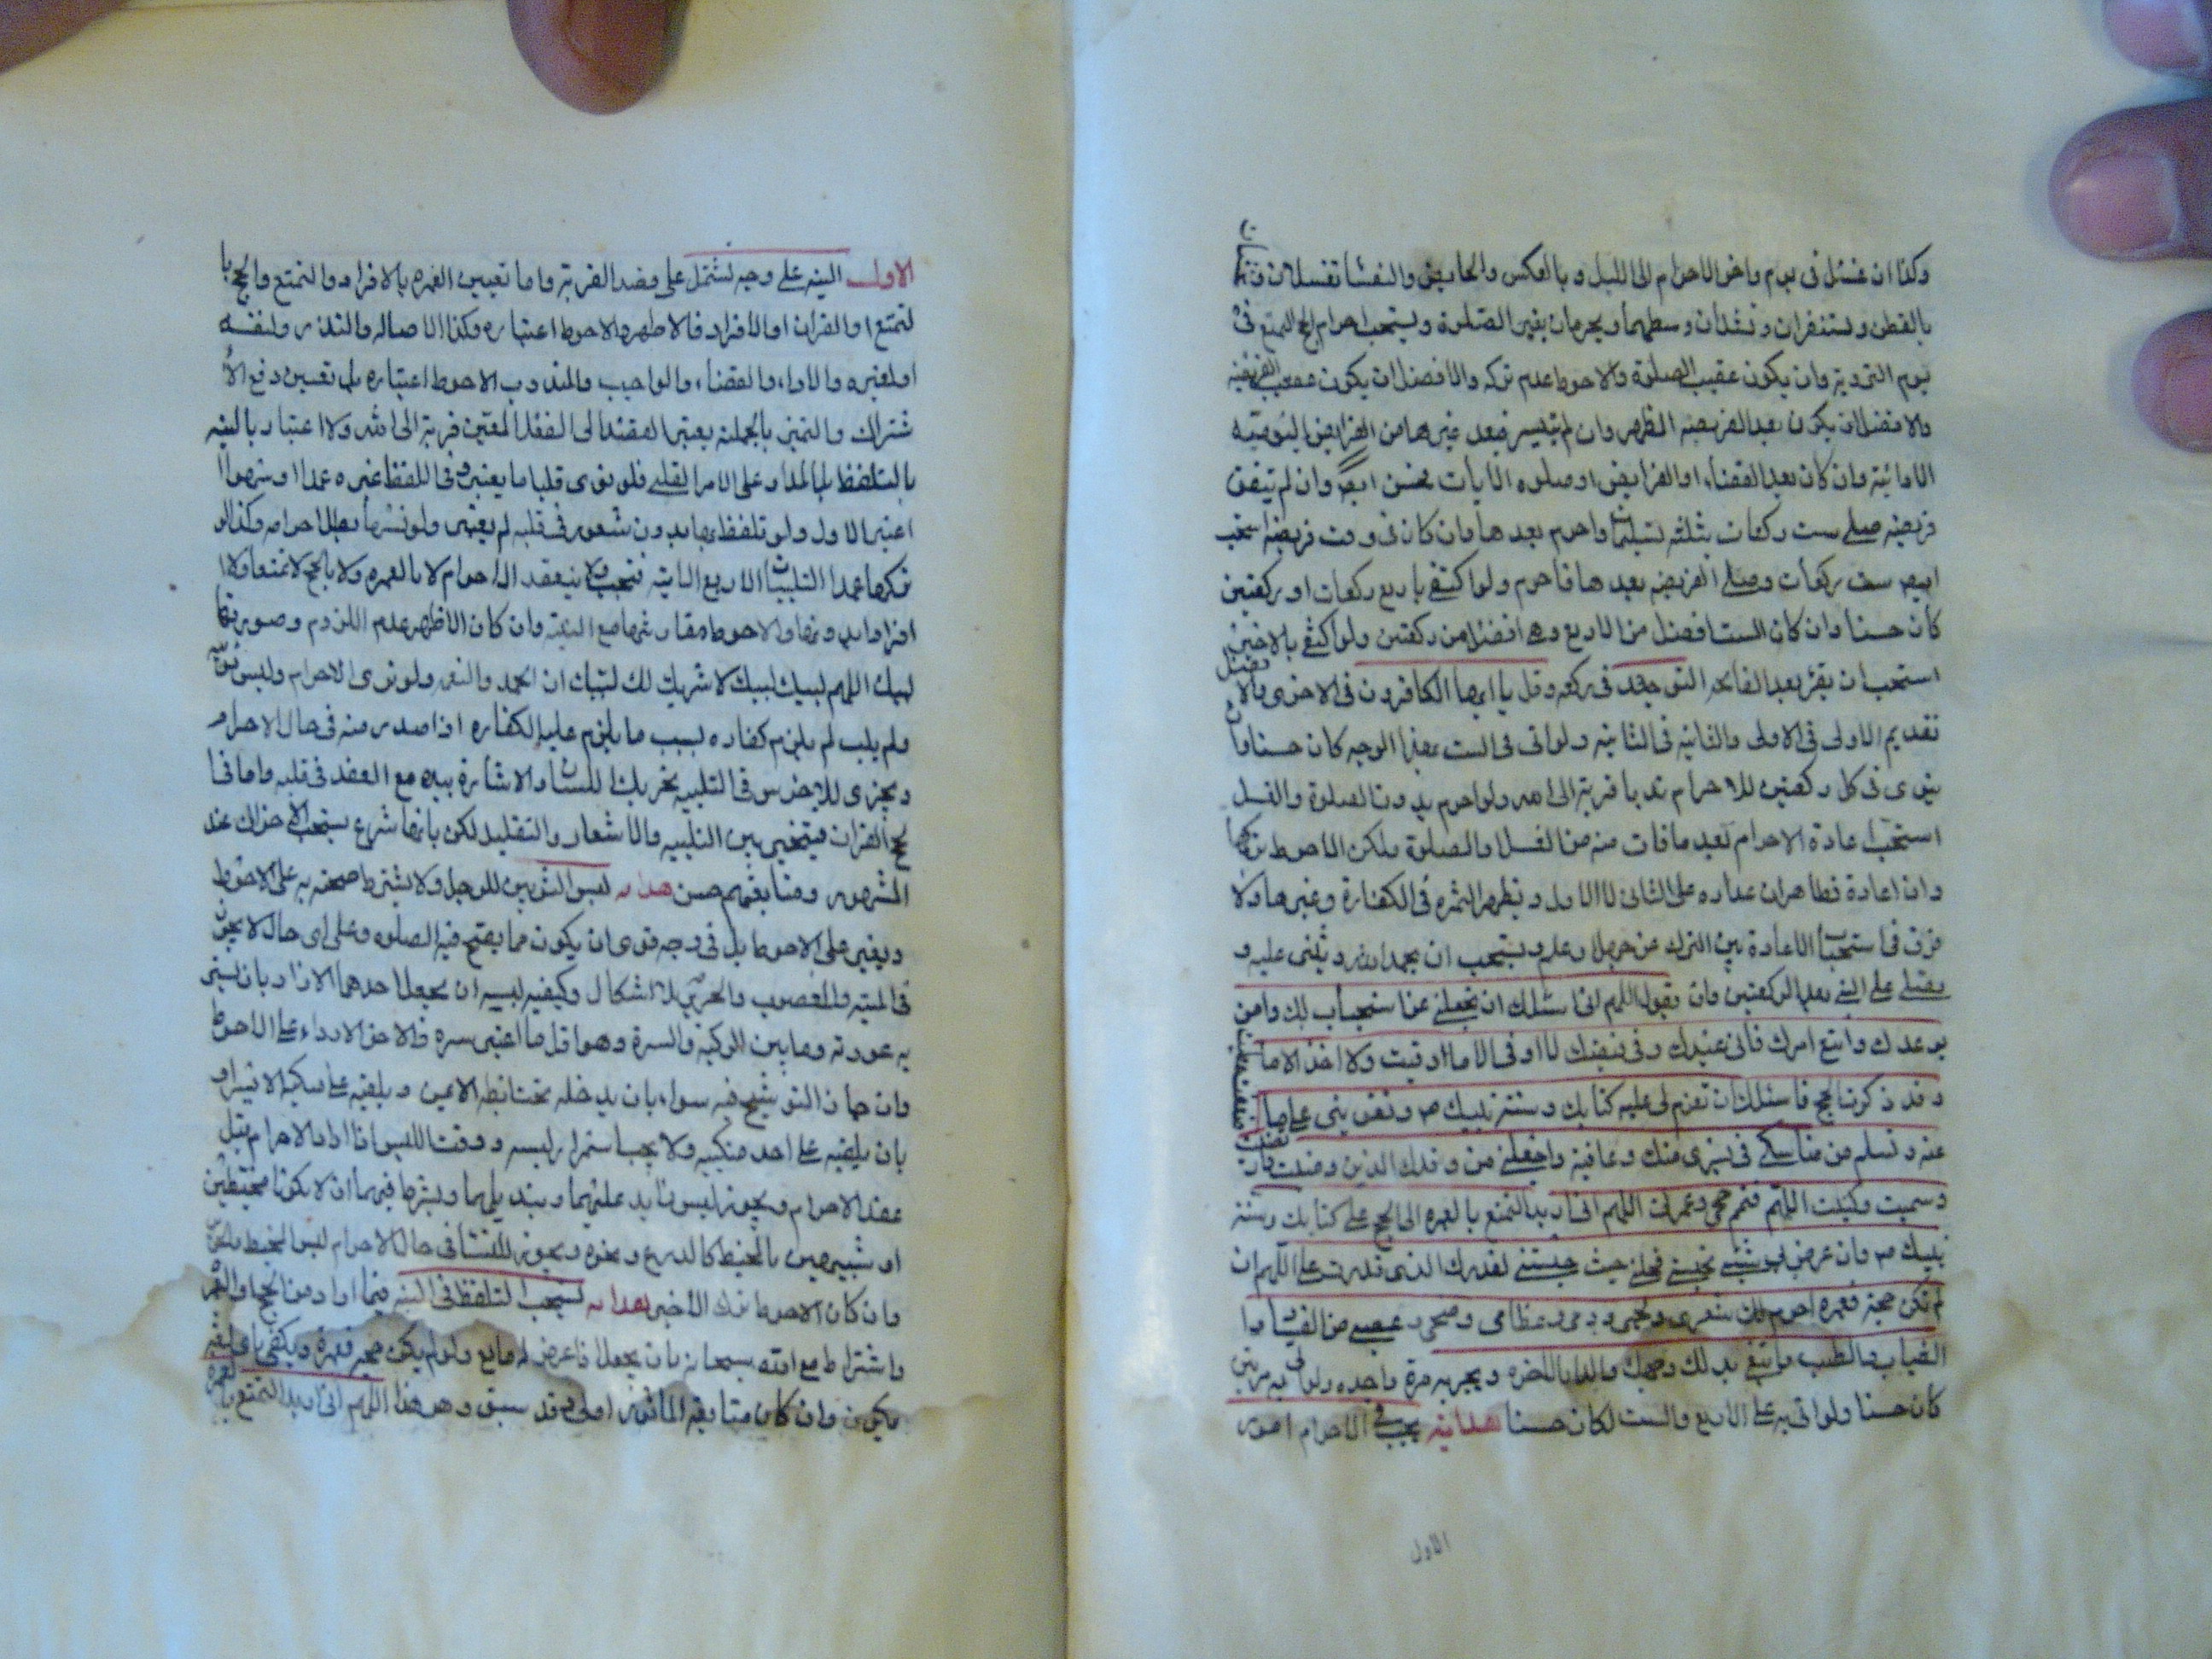 وكذا ان غسل في يوم واخر الاحرام الى الليل وبالعكس والحايض والنفسا تغسلان
بالقطن وتستثفران وتشدان وسطهما ويحرمان بغير الصلوة ويستحب احرام الحج التمتع في
يوم التروية وان يكون عقيب الصلوة والاحوط عدم تركه والافضل ان يكون عقيب الفريضة
والافضل ان يكون بعد الفريضه الظهر وان لم يتيسر فبعد غيرها من الفرايض اليوميه
الادائية وان كان بعد القضاء او الفرايض او صلوه الايات محسن ايضا وان لم يتفق
فريضه صلى ست ركعات بثلثه تسليمات واحرم بعدها وان كان في وقت فريضه استحب
ايضا ست ركعات وصلى الفريضه بعدها فاحرم ولو اكتفى باربع ركعات او ركعتين
كان حسنا وان كان الست افضل من الاربع وهي افضل من ركعتين ولو اكتفى بالاخير
استحب ان يقرء بعد الفاتحه التوحيد في ركعه وقل يا ايها الكافرون في الاخرى والافضل
تقديم الاولى في الاولى والثانيه في الثانيه ولو اتى في الست بهذا الوجه كان حسنا وان
ينوى في كل ركعتين للاحرام ندبا قربة الى الله ولو احرم بدون الصلوة والغسل
استحب اعادة الاحرام بعد ما فات منه من الغسل والصلوة ولكن الاحوط تركها
وان اعادة فطاهران عداره على الثاني لا الاول وتظهر الثمره في الكفارة وغيرها ولا
فرق في استحباب الاعادة بين الترك عن جهل وعلم ويستحب ان يحمد الله ويثنى عليه و
يصلى على النبي بعد الركعتين وان يقول اللهم انى اسئلك ان تجعلني ممن استجاب لك وامن
بوعدك واتبع امرك فانى عبدك وفى قبضتك لا اوقى الا ما اوقيت ولا اخذ الا ما
وقد ذكرت الحج فاسئلك ان تعزم لى عليه كتابك وسنة نبيك ص وتقوينى على ما
عنه وتسلم من مناسكى في يسرى منك وعافية واجعلنى من وفدك الذين رضيت
وسميت وكتبت اللهم فتمم حجى وعمرتى اللهم انى اريد التمتع بالعمره الى الحج على كتابك وسنة
نبيك ص وان عرض لى شئ يحبسنى فحلنى حيث حبستنى لقدرك الذى قدرت على اللهم ان
لم تكن حجة فعمره احرم لك شعرى ولحمى ودمى وعظامى ومخى وعصبى من النساء وا
الثياب والطيب وابتغى بذلك وجهك والدار الاخره ويجزيه مرة واحده ولو اتى به مرتين
كان حسنا ولو اتى به على الاربع والست لكان حسنا هداية يجب في الاحرام امور
الاول
الاول النيه على وجه تشتمل على قصد القربة واما تعيين العمره بالافراد والتمتع والحج با
لتمتع او القران او الافراد فالاظهر والاحوط اعتباره وكذا الاصاله والنذر ولنفسه
او لغيره والاداء والقضاء والواجب والمندوب الاحوط اعتباره بل تعيين دفع الا
شتراك والتميز بالجملة يعتبر القصد الى الفعل المعين قربة الى الله ولا اعتبار بالنيه
بالتلفظ بل المدار على الامر القلبى فلو نوى قلبا ما يعتبر وفى اللفظ غيره عمدا او سهوا
اعتبر الاول ولو تلفظ بها بدون شعور في قلبه لم يعتبر ولو نسيها بطل احرامه وكذا لو
تركها عمدا التلبيات الاربع الثانية فتجب ولا ينعقد الاحرام لا بالعمره ولا بالحج لا تمتعا ولا
افرادا بدونها والاحوط مقارنتها مع النية وان كان الاظهر عدم اللزوم وصورتها
لبيك اللهم لبيك لبيك لا شريك لك لبيك ان الحمد والنعمه ولو نوى الاحرام ولبس ثوبيه
ولم يلب لم يلزم كفاره بسبب ما يلزم عليه الكفاره اذا صدر منه في حال الاحرام
ويجزى للاخرس في التلبيه تحريك اللسان والاشارة بيده مع العقد في قلبه واما في
حج القران فيتخير بين التلبيه والاشعار والتقليد لكن بايها شرع يستحب الاخر عند
المشهور ومتابعتهم حسن هدايه لبس الثوبين للرجل ولا يشترط صحته به على الاحوط
ويعتبر على الاحوط بل في وجه قوى ان يكون مما يصح فيه الصلوه وعلى اى حال لا يجوز
في الميته والمغصوب والحرير لا اشكال وكيفيه لبسه ان يجعل احدهما الازار بان يستر
به عورته وما بين الركبه والسرة وهو اقل ما اعتبر ستره والاخر الرداء على الاحوط
وان جاز التوشيح فيه سواء بان يدخله تحت ابطه الايمن ويلقيه على منكبه الايسر او
بان يلقيه على احد منكبيه ولا يجب استمرار لبسه ووقت اللبس اذا اراد الاحرام قبل
عقد الاحرام ويجوز لبس ثايد عليهما وتبديلهما ويشترط فيهما ان لا يكونا مخيطين
او شبيهين بالمخيط كالدرع ونحوه ويجوز للنساء في حال الاحرام لبس المخيط
وان كان الاحوط ترك الاخير هدايه يستحب التلفظ في النيه فيما اراد من الحج والعمره
واشتراط مع الله سبحانه بان يحل اذا عرض له مانع ولو لم يكن حجه فعمرة ويكفى باى لفظ
يكون وان كان متابعه الماثور اولى وقد سبق وهو هذا اللهم انى اريد التمتع بالعمره